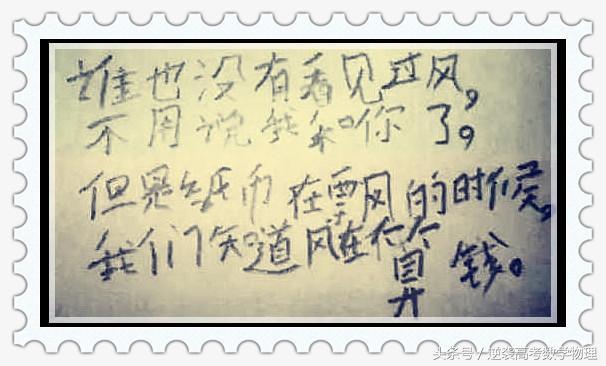 谁也没有看见过风,
不用说我和你了。
但是纸币在飘的时候,
我们知道风在算钱。
头条号 / 逆袭高考数学物理